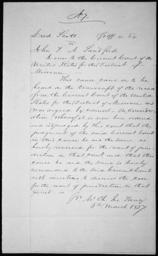 Dred Scott
vs
John F. A. Sandford
In error to the Circuit Court of the
United States for the District of
Missouri.
This cause came on to be
heard on the transcript of the record
from the Circuit Court of the United
States for the District of Missouri and
was argued by counsel. On consideration
whereof, it is now here ordered
and adjudged by this court that the
judgment of the said Circuit Court
in this cause be and the same is
hereby reversed for the want of juris
diction in that court and that this
cause be and the same is hereby
remanded to the said Circuit Court
with directions to dismiss the case
for the want of jurisdiction in that
court.
Ch. Jus. Taney
6th March 1857